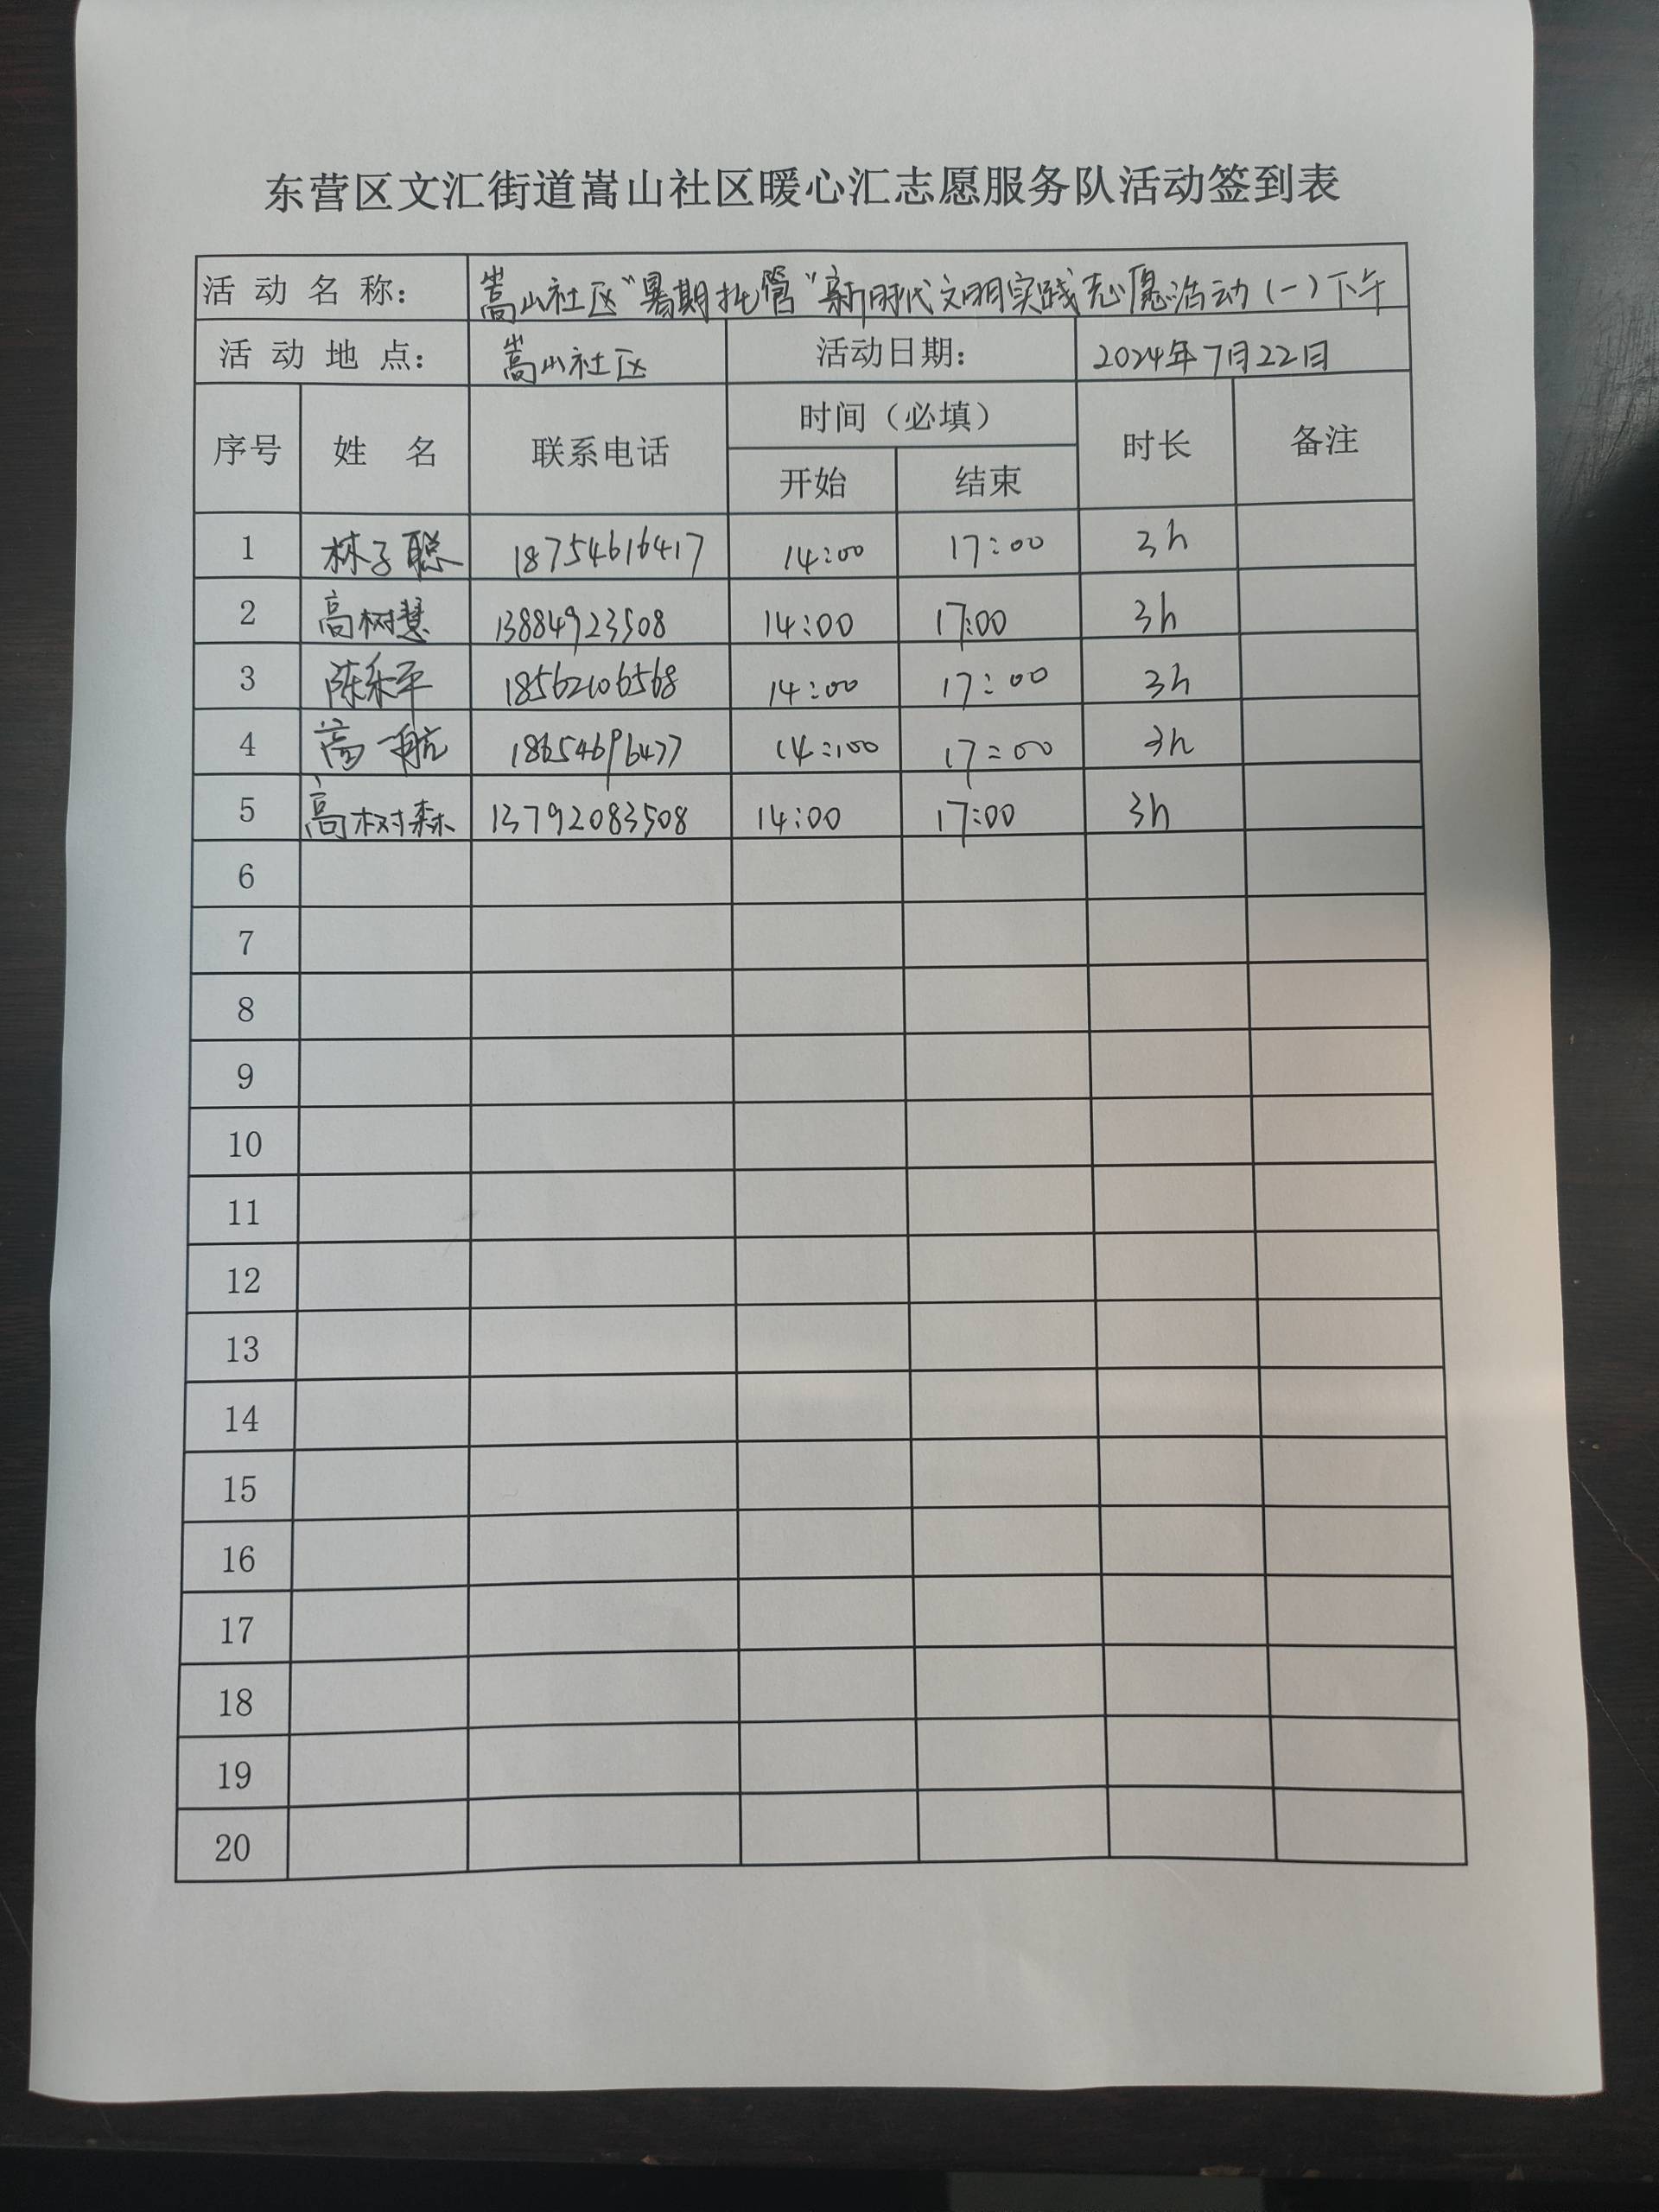 东营区文汇街道嵩山社区暖心汇志愿服务队活动签到表
活动名称： 嵩山社区“暑期托管”新时代文明实践志愿活动(一)下午
活动地点： 嵩山社区 活动日期： 2024年7月22日
序号 姓名 联系电话 时间（必填） 时长 备注
开始 结束
1 林子聪 18754616417 14:00 17:00 3h
2 高树慧 13884923508 14:00 17:00 3h
3 陈乐平 18562106568 14:00 17:00 3h
4 高一航 18654696477 14:00 17:00 3h
5 高树森 13792083508 14:00 17:00 3h
6
7
8
9
10
11
12
13
14
15
16
17
18
19
20